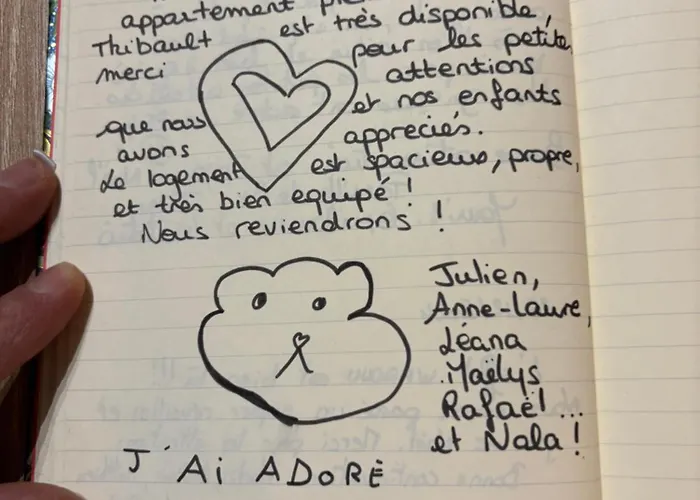 appartement
Thibault est très disponible,
merci pour les petites
attentions
que nous et nos enfants
avons appreciés.
Le logement est spacieux, propre,
et très bien equipé !
Nous reviendrons !
Julien,
Anne-Laure,
Léana
Maëlys
Rafaël...
et Nala !
J'Ai ADORÉ